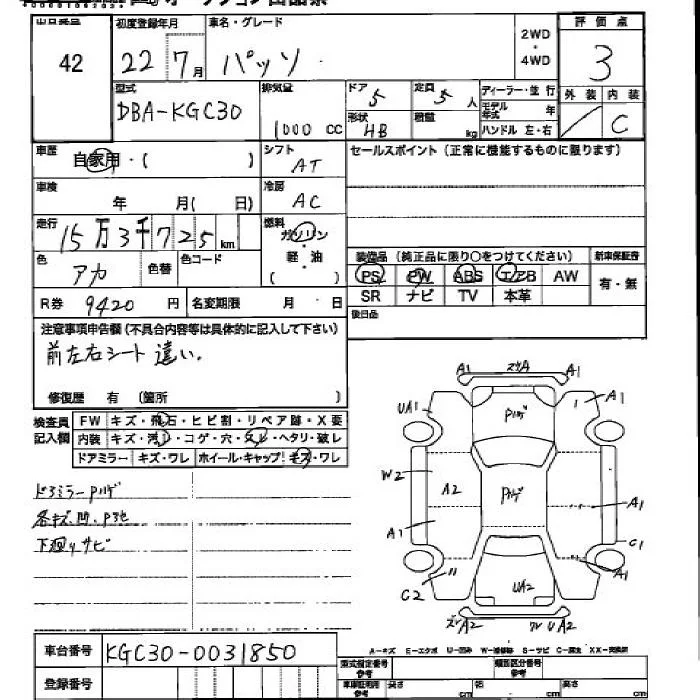 出品番号
42
初度登録年月
22 7月
車名・グレード
パッソ
2WD
・
4WD
評価点
3
型式
DBA-KGC30
排気量
1000 cc
ドア
5
定員
5 人
形状
HB
積載
kg
ディーラー・並行
モデル年式 年
ハンドル 左・右
外装 内装
C
車歴
自家用・( )
シフト
AT
セールスポイント(正常に機能するものに限ります)
車検
年 月( 日)
冷房
AC
走行
15万3千725km
燃料
ガソリン
・
軽・油
( )
色
アカ
色替
色コード
装備品(純正品に限り○をつけてください)
新車保証書
PS PW ABS エアB AW
有・無
SR ナビ TV 本革
R券 9420 円
名変期限 月 日
後日品
注意事項申告欄(不具合内容等は具体的に記入して下さい)
前左右シート違い.
修復歴 有 (箇所 )
検査員
記入欄
FW キズ・飛石・ヒビ割・リペア跡・X要
内装 キズ・汚レ・コゲ・穴・スレ・ヘタリ・破レ
ドアミラー キズ・ワレ ホイール・キャップ キズ・ワレ
ドアミラーPハゲ
各キズ.凹.P3他
下廻りサビ
A1 スリA A1
UA1 Pハゲ 1 A1
W2 A2 Pハゲ A1
A1 C1
C2 UA2 A1
スレA2 ワレUA2
A-キズ E-エクボ U-凹み W-補修跡 S-サビ C-腐食 XX-交換済
車台番号
KGC30-0031850
登録番号
型式指定番号
参考
類別区分番号
参考
車庫証明用
参考
長さ cm
cm
高さ cm